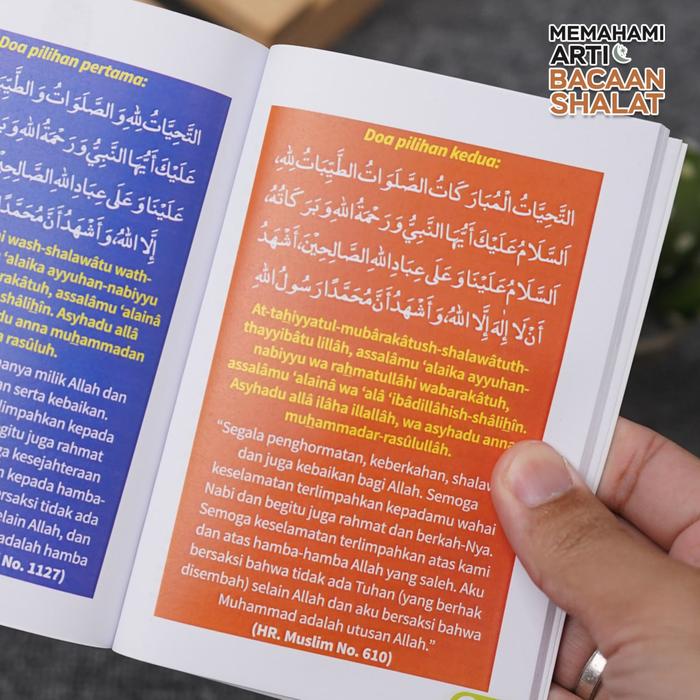 MEMAHAMI
ARTI
BACAAN
SHALAT
Doa pilihan pertama:
التَّحِيَّاتُ لِلَّهِ وَالصَّلَوَاتُ وَالطَّيِّبَا
عَلَيْكَ أَيُّهَا النَّبِيُّ وَرَحْمَةُ اللهِ وَبَرَ
عَلَيْنَا وَعَلَى عِبَادِ اللهِ الصَّالِحِ
إِلَّا اللهُ، وَأَشْهَدُ أَنَّ مُحَمَّدًا
wash-shalawâtu wath-
'alaika ayyuhan-nabiyyu
rakâtuh, assalâmu 'alainâ
shâliḥîn. Asyhadu allâ
du anna muḥammadan
rasûluh.
anya milik Allah dan
n serta kebaikan.
limpahkan kepada
egitu juga rahmat
ga kesejahteraan
n kepada hamba-
ersaksi tidak ada
elain Allah, dan
adalah hamba
No. 1127)
Doa pilihan kedua:
التَّحِيَّاتُ الْمُبَارَكَاتُ الصَّلَوَاتُ الطَّيِّبَاتُ لِلَّهِ،
اَلسَّلَامُ عَلَيْكَ أَيُّهَا النَّبِيُّ وَرَحْمَةُ اللهِ وَبَرَكَاتُهُ،
اَلسَّلَامُ عَلَيْنَا وَعَلَى عِبَادِ اللهِ الصَّالِحِيْنَ، أَشْهَدُ
أَنْ لَا إِلٰهَ إِلَّا اللهُ، وَأَشْهَدُ أَنَّ مُحَمَّدًا رَسُولُ اللهِ
At-taḥiyyatul-mubârakâtush-shalawâtuth-
thayyibâtu lillâh, assalâmu 'alaika ayyuhan-
nabiyyu wa raḥmatullâhi wabarakâtuh,
assalâmu 'alainâ wa 'alâ 'ibâdillâhish-shâliḥîn.
Asyhadu allâ ilâha illallâh, wa asyhadu anna
muḥammadar-rasûlullâh.
“Segala penghormatan, keberkahan, shalaw
dan juga kebaikan bagi Allah. Semoga
keselamatan terlimpahkan kepadamu wahai
Nabi dan begitu juga rahmat dan berkah-Nya.
Semoga keselamatan terlimpahkan atas kami
dan atas hamba-hamba Allah yang saleh. Aku
bersaksi bahwa tidak ada Tuhan (yang berhak
disembah) selain Allah dan aku bersaksi bahwa
Muhammad adalah utusan Allah.”
(HR. Muslim No. 610)